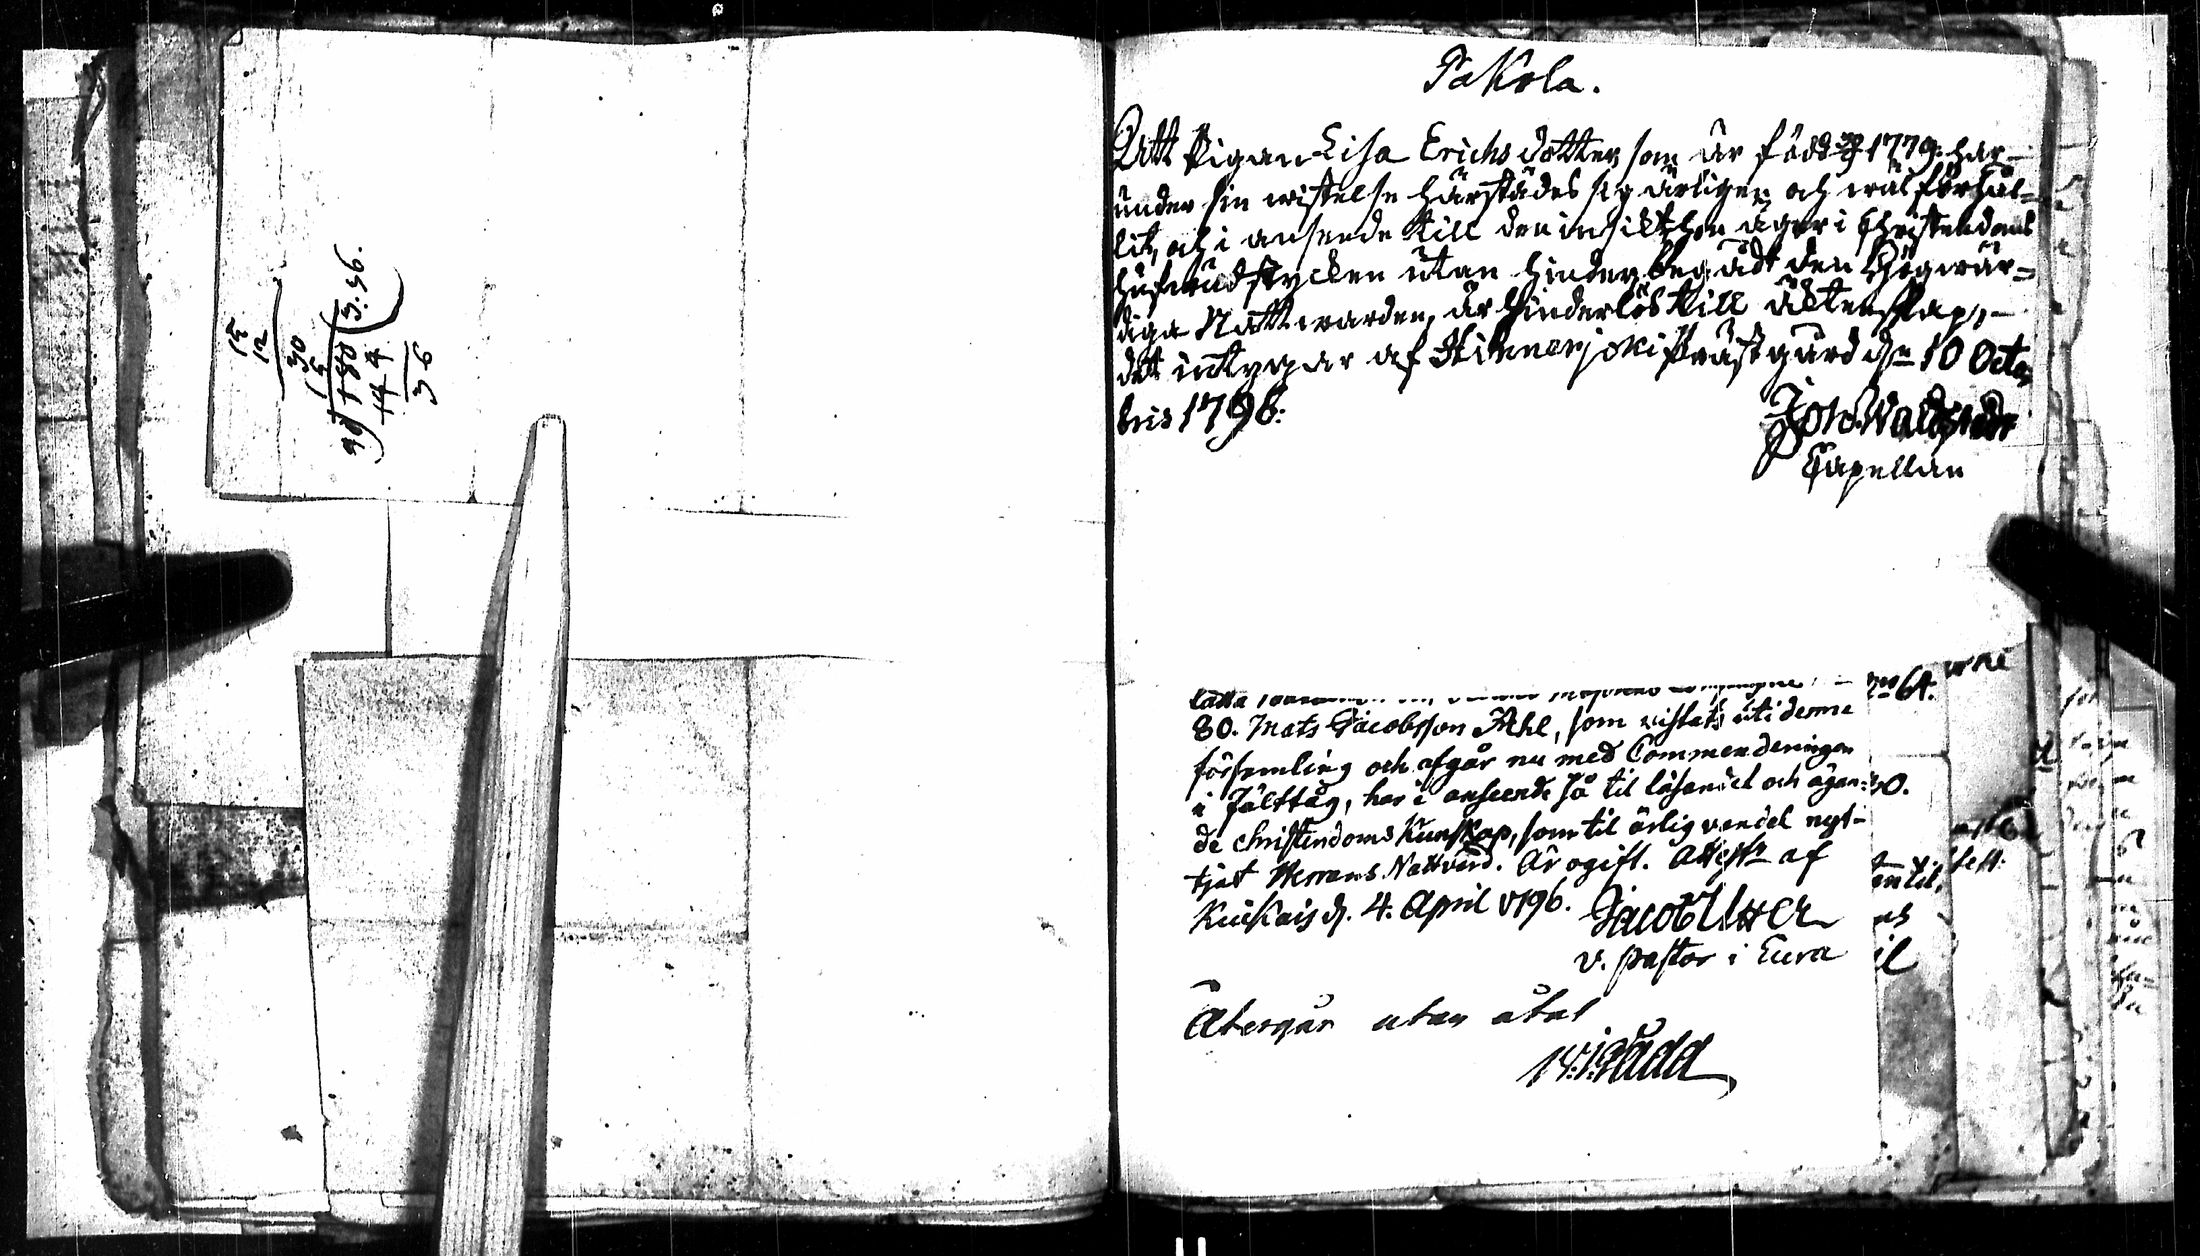 15
12
30
15
180
3:56.
144
36
Pakola.
Att Pigan Lisa Erichsdotter, som är född 1779: har
under sin wistelse härstädes sig ärligen och wäl förhål-
lit, och i anseende till den insikt hon äger i Christendoms
hufwudstycken utan hinder begådt den Högwär-
diga Nattwarden, är hinderlös till äktenskap,
det intygar af Hinnerjoki Prästgård d:n 10 Octo
bris 1796:
Joh. Wallstedt
Capellan
80. Mats Jacobsson Fihl, som vistats uti denne
församling och afgår nu med Commenderingen
i Fälttåg, har i anseende så til läsandet och ägan-
de Christendoms Kunskap, som til ärlig vandel nyt-
tjat Herrans Nattvard. Är ogift. Attest:r af
Kiukais d. 4. April 1796.
Jacob Utter
v. Pastor i Eura
Återgår utan åtal